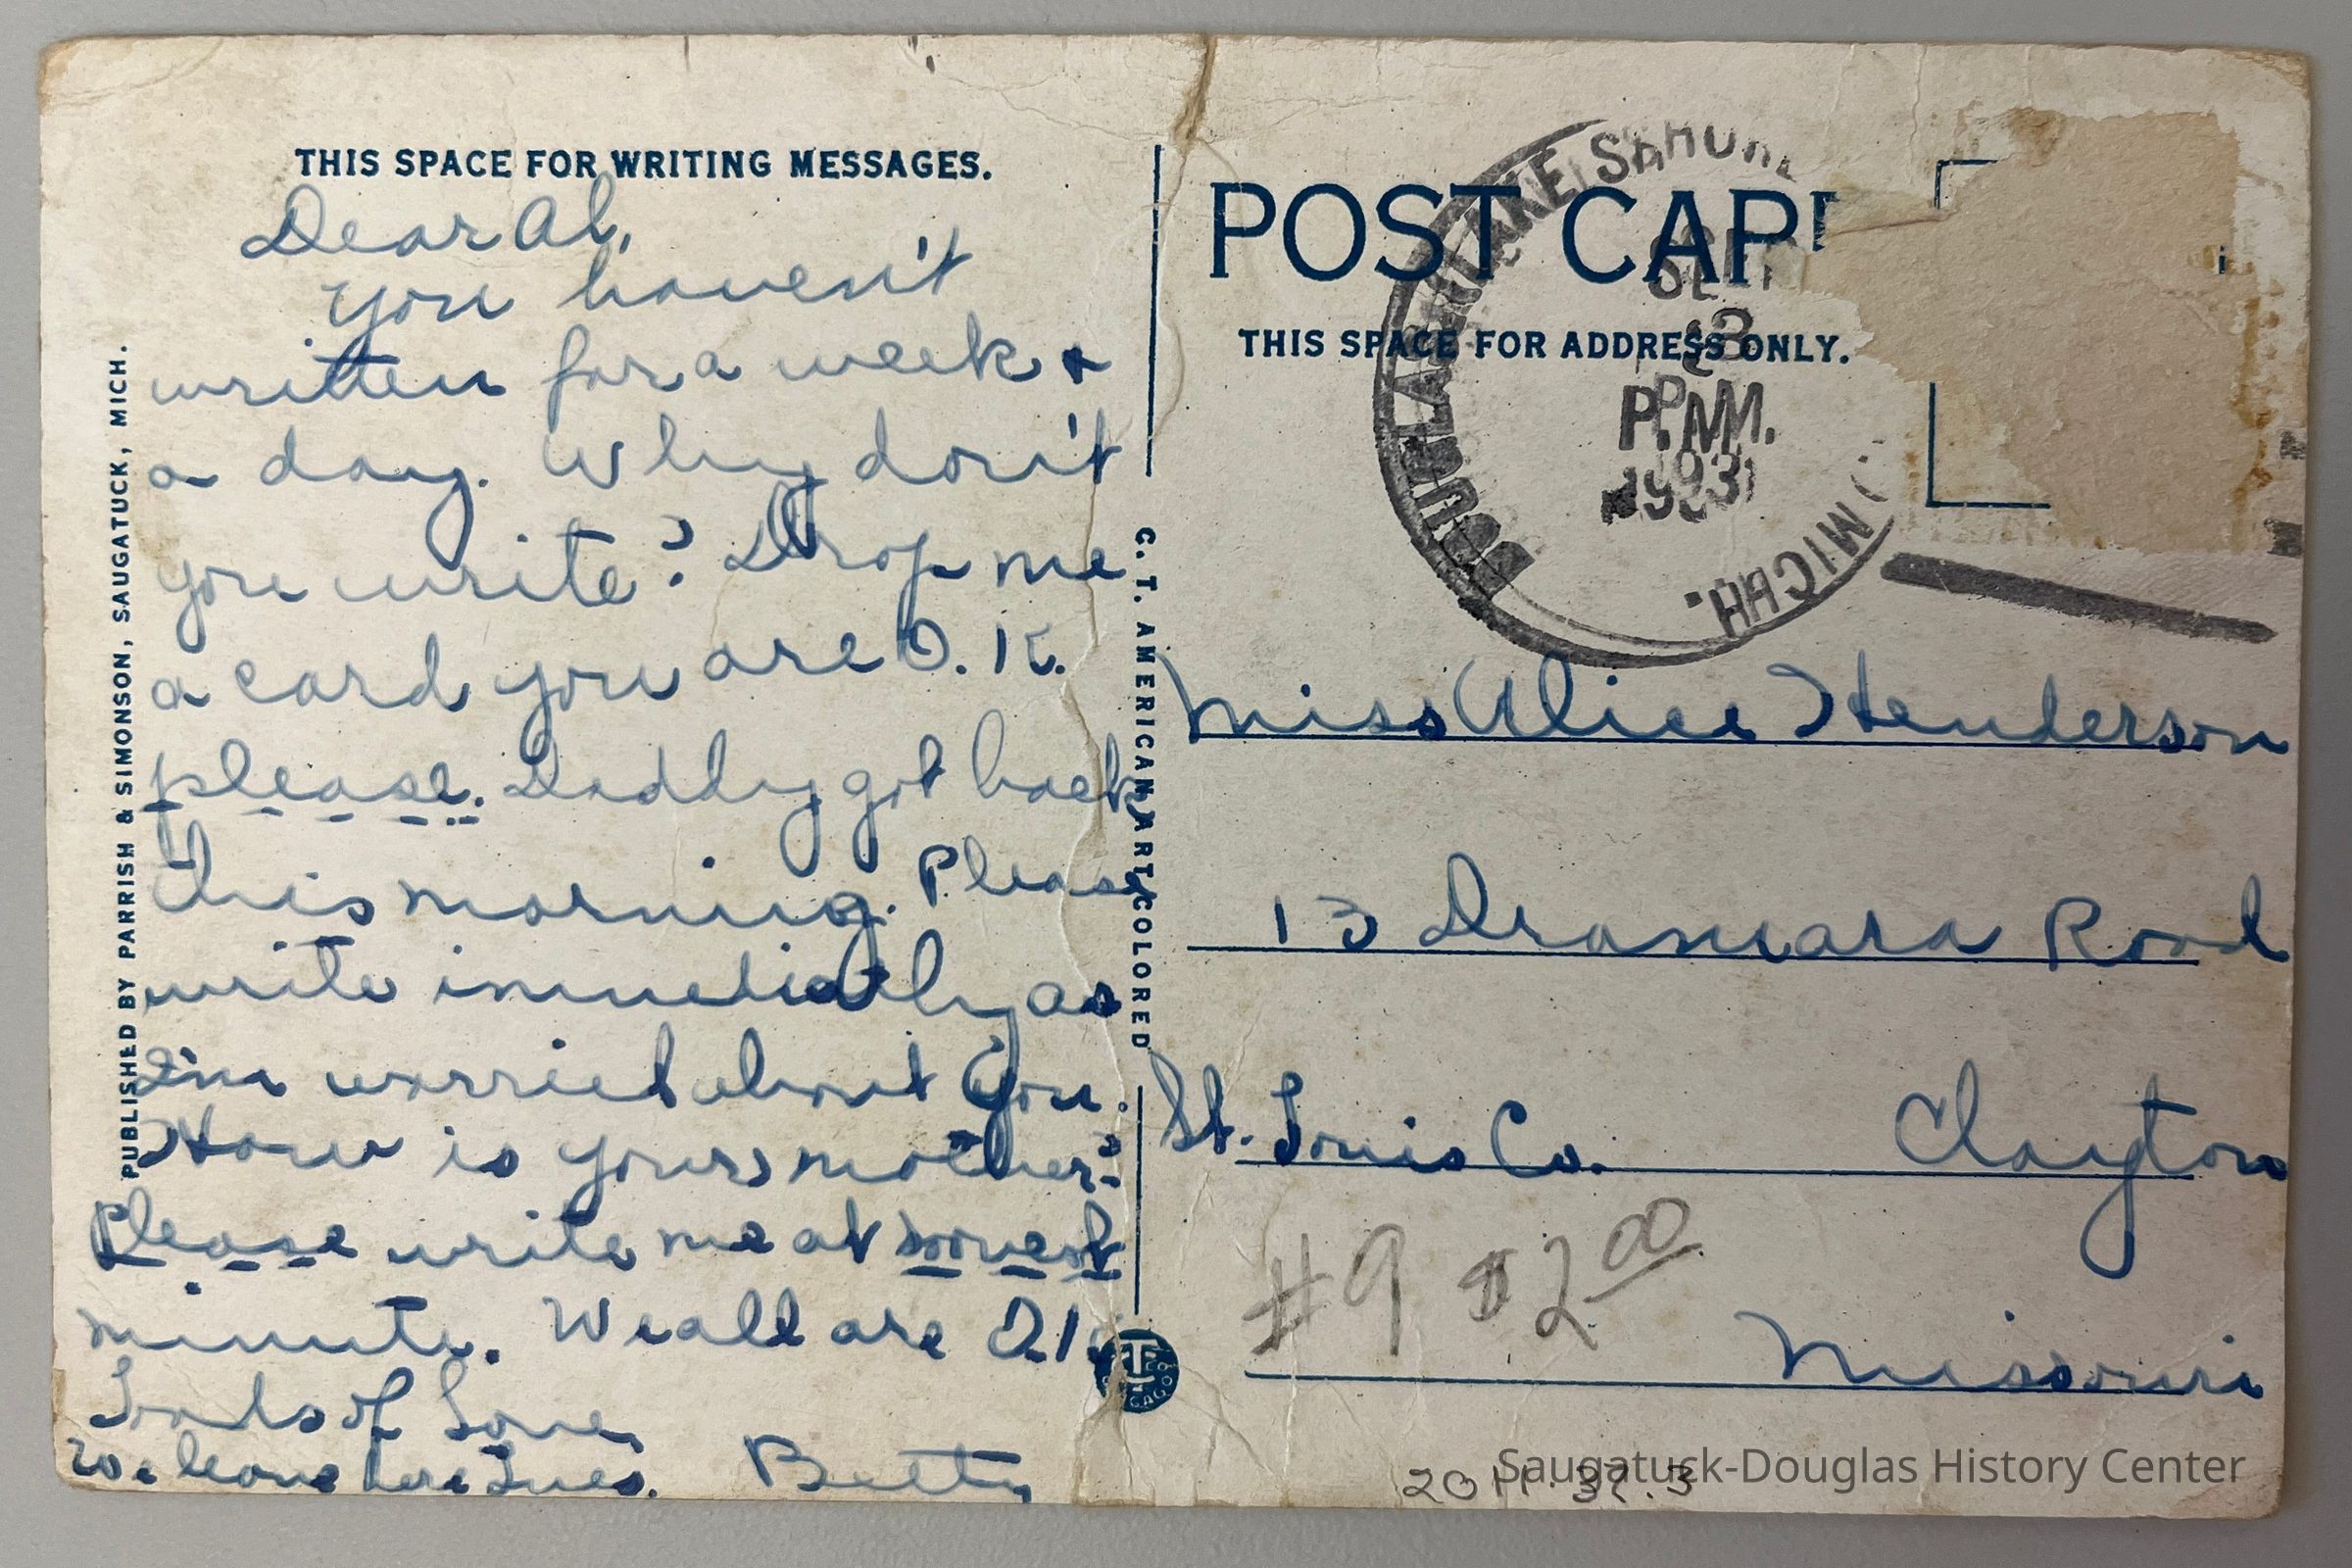 THIS SPACE FOR WRITING MESSAGES.
Dear Al,
You haven't
written for a week &
a day. Why don't
you write? Drop me
a card you are O.K.
please. Daddy got back
this morning. Please
write immediatly as
I'm worried about you.
How is your mother?
Please write me at
minute. We all are O.K.
Loads of Love,
We leave here Tues. Betty
PUBLISHED BY PARRISH & SIMONSON, SAUGATUCK, MICH.
C. T. AMERICAN ART COLORED
POST CARD
THIS SPACE FOR ADDRESS ONLY.
LAKE SHORE
P.M.
1931
MICH.
Miss Alice Henderson
13 Road
St. Louis Co. Clayton
#9 $2.00
Missouri
2011.37.3
Saugatuck-Douglas History Center